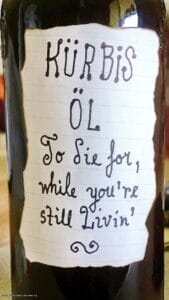 KÜRBiS
ÖL
To die for,
while you're
still Livin'